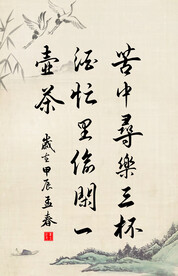 苦中尋樂三杯
酒忙里偷閑一
壺茶
歲在甲辰孟春